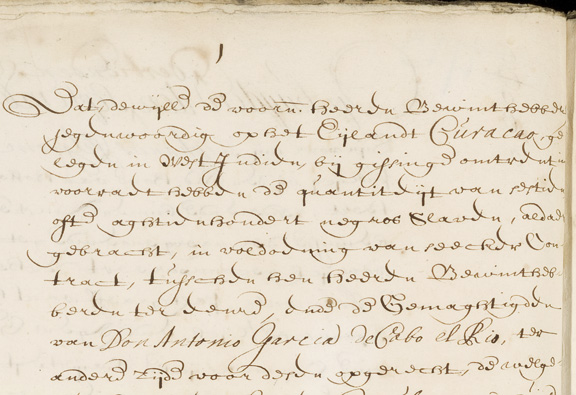 1
Dat, dewijlle de voorn. heeren Bewinthebber
jegenwoordig op het Eijlandt Curacao, ge
legen in West Indien, bij gissinge omtrent
voorradt hebben de quantiteijt van sestien
ofte aghtienhondert negros Slaven, aldaer
gebracht, in voldoening van seecker Con
tract, tusschen hen heeren Bewintheb
beren ter eenre, ende de Gemaghtigden
van Don Antonio Garcia de Cabo el Rio, ter
andere zijde voor desen opgerecht, de welge